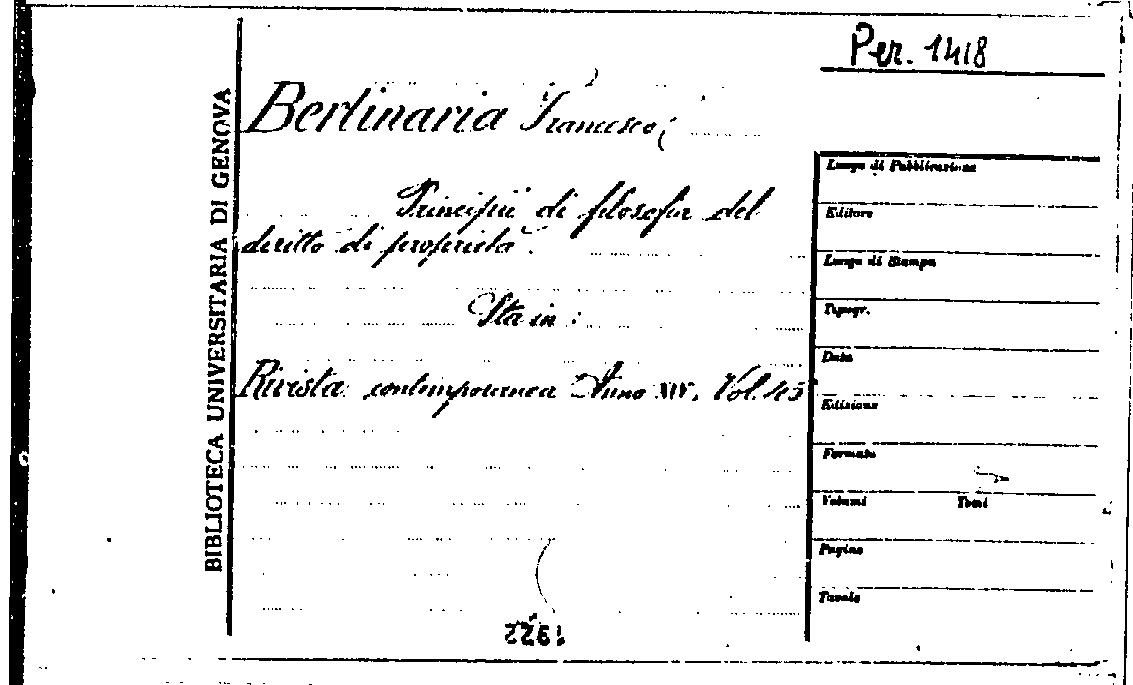 Per. 1418
BIBLIOTECA UNIVERSITARIA DI GENOVA
Bertinaria Francesco
Principii di filosofia del
diritto di proprietà.
Sta in:
Rivista contemporanea Anno XIV. Vol. 45
Luogo di Pubblicazione
Editore
Luogo di Stampa
Tipogr.
Data
Edizione
Formato
Volumi Tomi
Pagine
Tavole